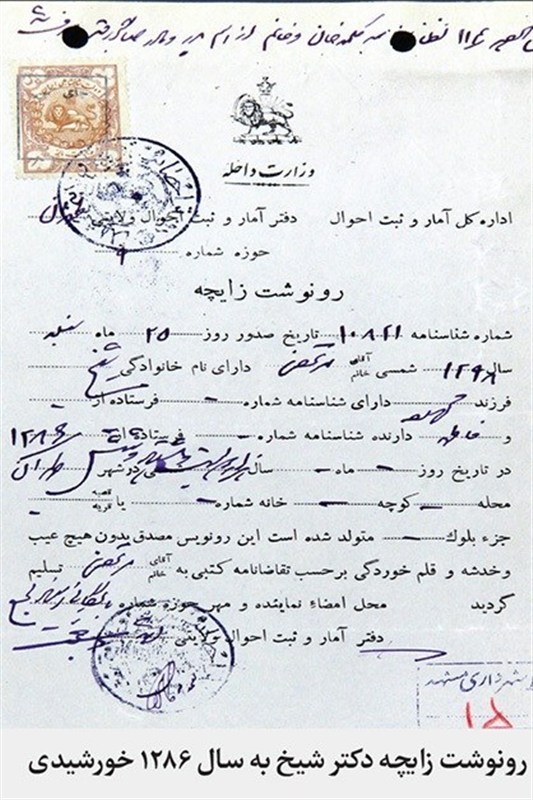 وزارت داخله
اداره کل آمار و ثبت احوال دفتر آمار و ثبت احوال ولایتی تهران
حوزه شماره ۹
رونوشت زایچه
شماره شناسنامه ۱۰۸۲۱ تاریخ صدور روز ۲۵ ماه سنبله
سال ۱۲۹۸ شمسی آقای خانم مرتضی دارای نام خانوادگی شیخ
فرزند دارای شناسنامه شماره - فرستاده از
و فاطمه دارنده شناسنامه شماره - فرستاده از
در تاریخ روز - ماه - سال یکهزار و دویست و هشتاد و شش شمسی در شهر طهران ۱۲۸۶
محله - کوچه - خانه شماره - یا قصبه قریه -
جزء بلوک - متولد شده است این رونویس مصدق بدون هیچ عیب
وخدشه و قلم خوردگی برحسب تقاضانامه کتبی به آقای خانم مرتضی تسلیم
گردید محل امضاء نماینده و مهر حوزه شماره
دفتر آمار و ثبت احوال ولایتی
شهرداری مشهد
۱۵
رونوشت زایچه دکتر شیخ به سال ۱۲۸۶ خورشیدی